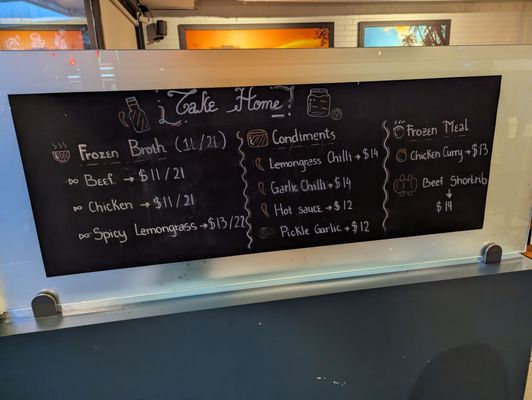 ¿Take Home!
Frozen Broth (1L/2L)
Beef → $11/21
Chicken → $11/21
Spicy Lemongrass → $13/22
Condiments
Lemongrass Chilli → $14
Garlic Chilli → $14
Hot sauce → $12
Pickle Garlic → $12
Frozen Meal
Chicken Curry → $13
Beef Shortrib
↓
$19